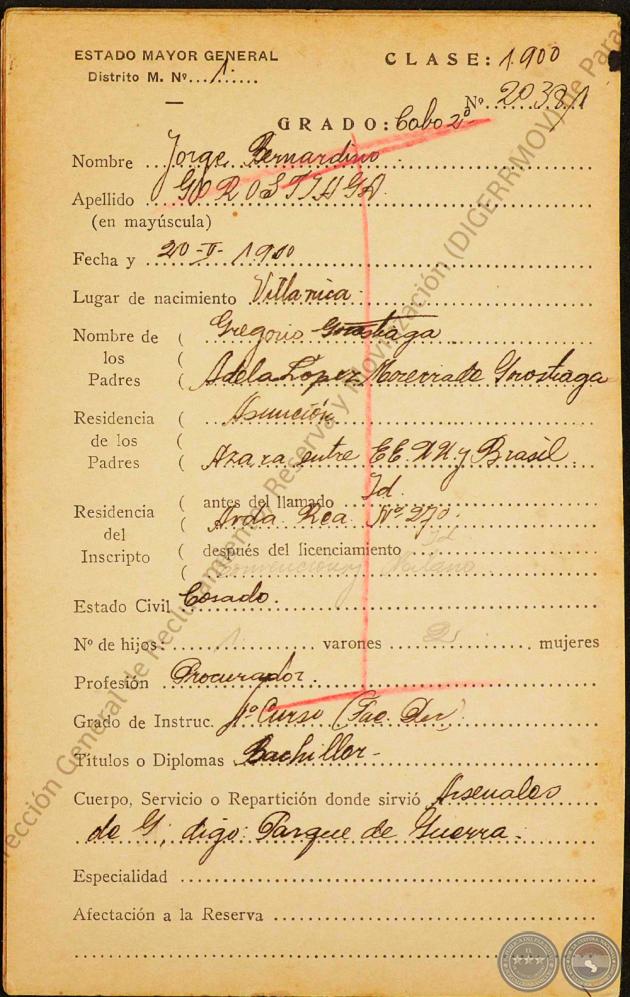 ESTADO MAYOR GENERAL
CLASE: 1.900
Distrito M. Nº. 1.
Nº 20381
GRADO: Cabo 2º
Nombre Jorge Bernardino
Apellido GOROSTIAGA
(en mayúscula)
Fecha y 20-II-1900
Lugar de nacimiento Villarrica
Nombre de los Padres
Gregorio Gorostiaga
Adela López Moreira de Gorostiaga
Residencia de los Padres
Asunción
Azara entre EE.UU y Brasil
Residencia del Inscripto
antes del llamado Id
Avda. Rca Nº 270
después del licenciamiento Id
Convención y
Estado Civil Casado
Nº de hijos: 1 varones 2 mujeres
Profesión Procurador
Grado de Instruc. 1º Curso (Fac. Der)
Títulos o Diplomas Bachiller-
Cuerpo, Servicio o Repartición donde sirvió Arsenales
de G; digo: Parque de Guerra
Especialidad
Afectación a la Reserva
Dirección General de Reclutamiento Reserva y Movilización (DIGERRMOV) de Para